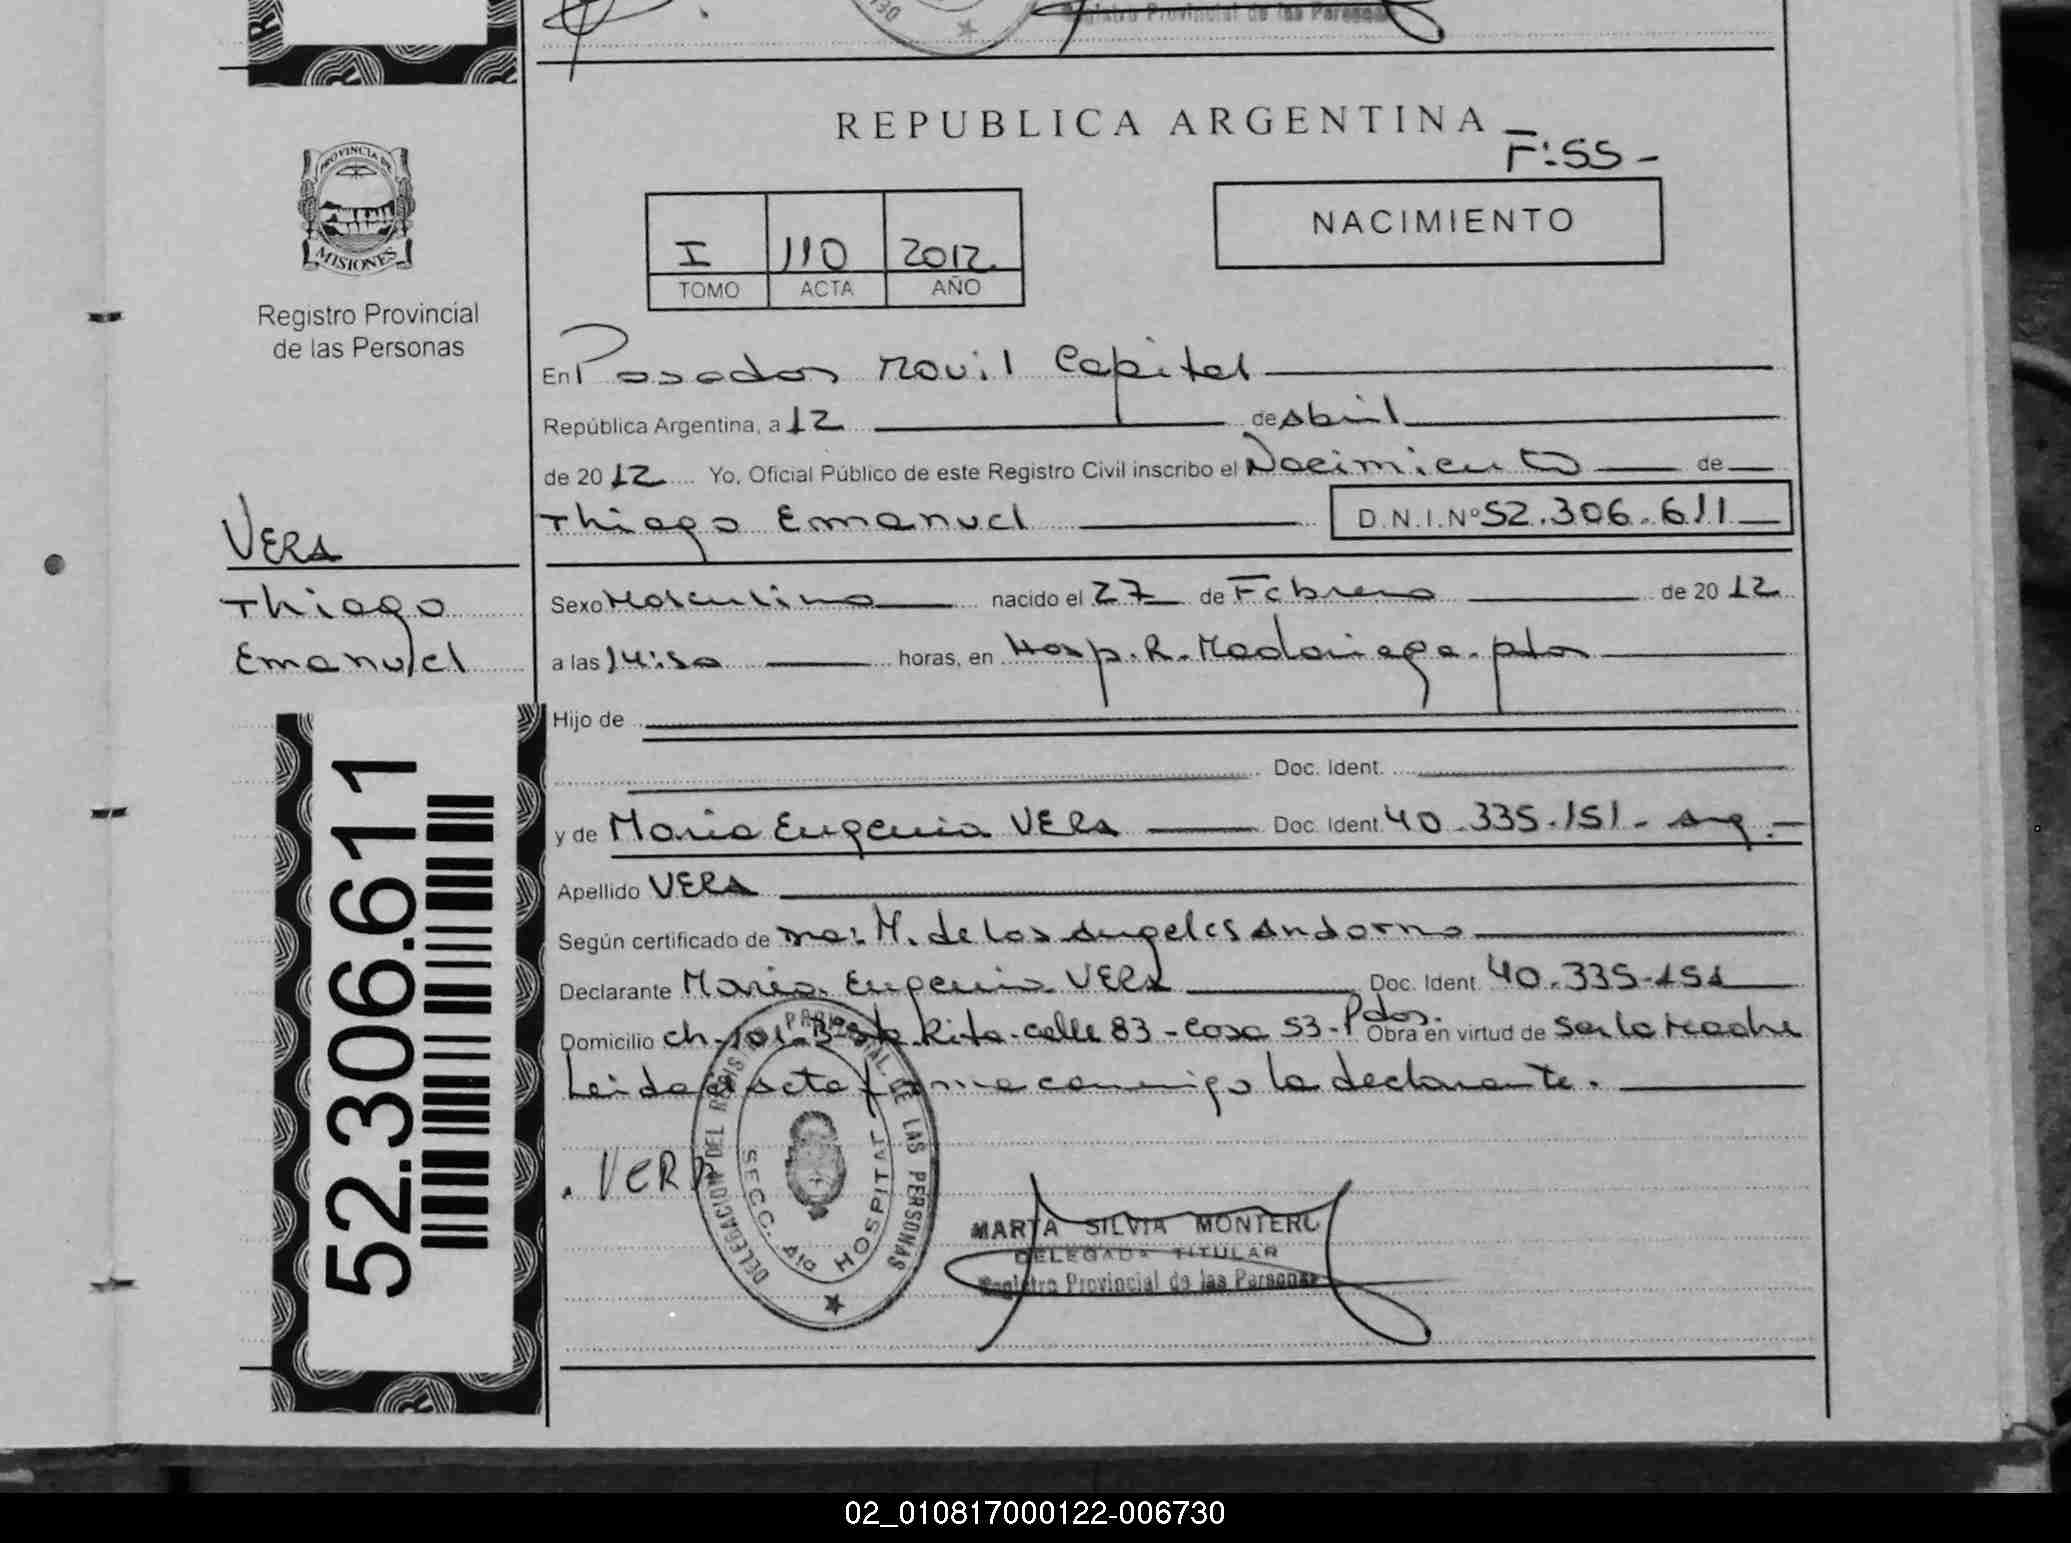 Registro Provincial de las Personas
REPUBLICA ARGENTINA
F:55-
PROVINCIA DE
MISIONES
Registro Provincial
de las Personas
I 110 2012.
TOMO ACTA AÑO
NACIMIENTO
En Posadas Movil Capital
República Argentina, a 12 de Abril
de 2012 Yo, Oficial Público de este Registro Civil inscribo el Nacimiento de
Thiago Emanuel D.N.I.Nº 52.306.611
VERA
Thiago
Emanuel
Sexo Masculino nacido el 27 de Febrero de 2012
a las 14:50 horas, en Hosp. R. Madariaga. pdas
Hijo de
Doc. Ident.
y de Maria Eugenia VERA Doc. Ident. 40.335.151- Arg.-
Apellido VERA
Según certificado de M. de Los Angeles Andorno
Declarante Maria Eugenia VERA Doc. Ident. 40.335-151
Domicilio ch-101-B-Sta Rita-calle 83-Casa 53-Pdas. Obra en virtud de Ser la Madre
Leida el acta firma conmigo la declarante.
52.306.611
. VERA
DELEGACION DEL REGISTRO PROVINCIAL DE LAS PERSONAS
SECC. 4ta HOSPITAL
MARTA SILVIA MONTERO
DELEGADA TITULAR
Registro Provincial de las Personas
02_010817000122-006730